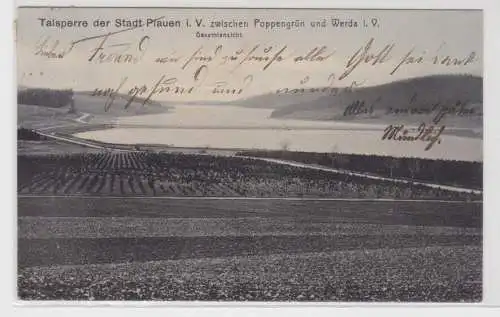 Talsperre der Stadt Plauen i. V. zwischen Poppengrün und Werda i. V.
Gesamtansicht.
Lieben Freund wir sind zu hause alle Gott sei dank
noch gesund und munder